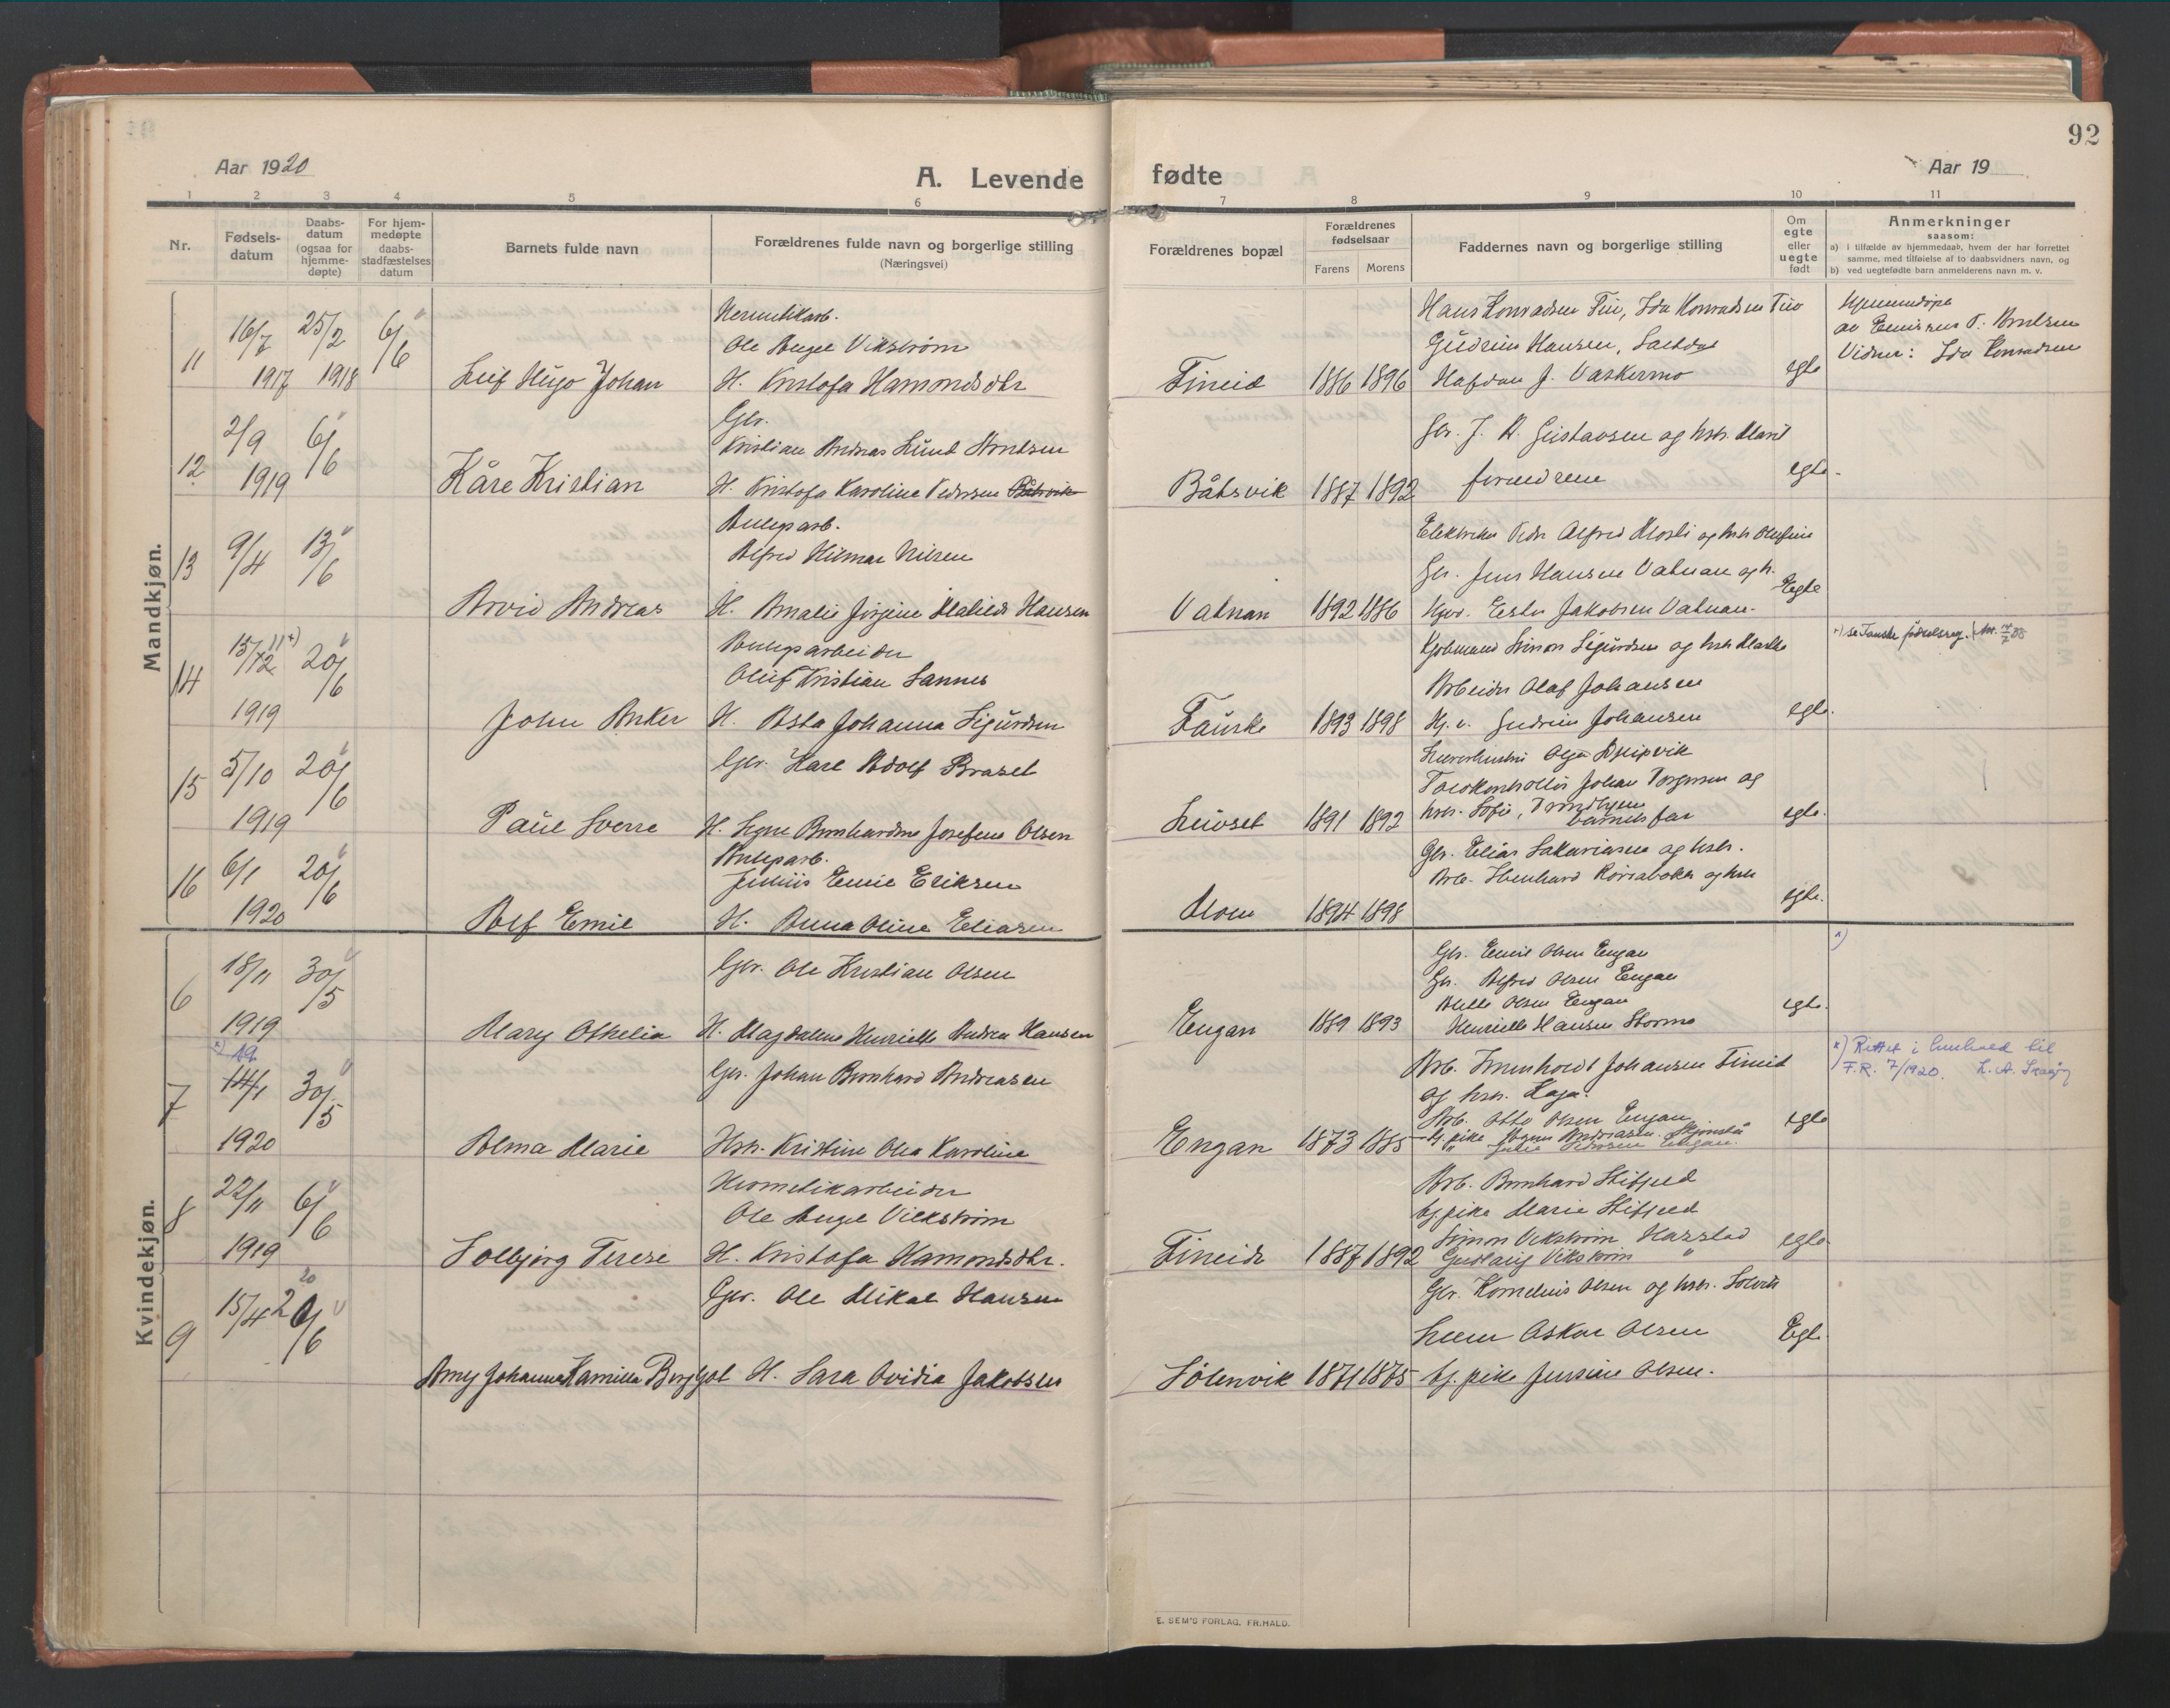 92
Aar 1920
A. Levende fødte
Aar 19
1 2 3 4 5 6 7 8 9 10 11
Nr.
Fødsels-
datum
Daabs-
datum
(ogsaa for
hjemme-
døpte)
For hjem-
medøpte
daabs-
stadfæstelses
datum
Barnets fulde navn
Forældrenes fulde navn og borgerlige stilling
(Næringsvei)
Forældrenes bopæl
Forældrenes
fødselsaar
Farens Morens
Faddernes navn og borgerlige stilling
Om
egte
eller
uegte
født
Anmerkninger
saasom:
a) i tilfælde av hjemmedaab, hvem der har forrettet
samme, med tilføielse af to daabsvidners navn, og
b) ved uegtefødte barn anmelderens navn m. v.
Mandkjøn.
11 16/7 1917 25/2 1918 6/6
Leif Hugo Johan
Hermetikarb.
Ole Angel Vikstrøm
H. Kristofa Hamondsdtr
Fineid 1886 1896
Hans Konradsen Fin, Ida Konradsen Fin
Gudrun Hansen, Saltdal
Hafdan J. Vaskermo
egte
Hjemmedøpt
av Emissær P. Arntsen
Vidner: Ida Konradsen
12 2/9 1919 6/6
Kåre Kristian
Gbr.
Kristian Andreas Lund Arntsen
H. Kristofa Karoline Pedersen Båtsvik
Båtsvik 1887 1892
Gbr. J. A. Gustavsen og hstr. Marit
foreldrene
egte.
13 9/4 13/6
Arvid Andreas
Anlegsarb.
Alfred Hilmar Nilsen
H. Amalie Jørgine Matilde Hansen
Vatnan 1892 1886
Elektriker Pedr Alfred Mosli og hstr Olufine
Gbr. Jens Hansen Vatnan og h.
Ester Jakobsen Vatnan.
Egte
14 15/12 11 +) 1919 20/6
John Anker
Anlegsarbeider
Oluf Kristian Sannes
H. Asta Johanna Sigurdsen
Fauske 1893 1898
Kjøbmand Simon Sigurdsen og hstr
Arbeider Olaf Johansen
Hj. v. Gudrun Johansen
egte.
+) se Fauske fødselsreg.
15 5/10 1919 20/6
Paul Sverre
Gbr. Karl Adolf Braset
H. Signe Bernhardine Josefine Olsen
Leivset 1891 1892
Lærerhustru Olga Djupvik
Johan Torgersen og
hstr. Sofie, Trondhjem
barnets far
egte.
16 6/1 1920 20/6
Alf Emil
Anlegsarb.
Julius Emil Eriksen
H. Anna Oline Eliasen
Moen 1894 1898
Gbr. Elias Sakariasen og hstr.
egte.
Kvindekjøn.
6 18/11 1919 30/5
Mary Othelia
Gbr. Ole Kristian Olsen
H. Magdalene Henriette Andrea Hansen
Engan 1889 1893
Gbr. Emil Olsen Engan
Gbr. Alfred Olsen Engan
Olsen Engan
Henriette Hansen Stormo
egte.
x)
7 x) 19 14/1 1920 30/5
Alma Marie
Gbr. Johan Bernhard Andreasen
Hstr. Kristine Olea Karoline
Engan 1873 1885
Arb. Johansen Fineid
og hstr. Kaja.
Arb. Otto Olsen Engan
Andreasen
Engan
egte
x) Rettet i henhold til
F.R. 7/1920.
8 22/11 1919 6/6
Solbjørg Terese
Hermetikarbeider
Ole Angel Vikstrøm
H. Kristofa Hamondsdtr.
Fineide 1887 1892
Arb. Bernhard Stifjeld
Uj. pike Marie Stifjeld
Simon Vikstrøm Harstad
Gudlaug Vikstrøm "
egte.
9 15/4 20 20/6
Amy Johanna Kamilla Bergljot
Gbr. Ole Mikal Hansen
H. Sara Ovidia Jakobsen
Sølenvik 1871 1875
Gbr. Kornelius Olsen og hstr.
Oskar Olsen
Uj. pike Jensine Olsen.
Egte.
E. SEM'S FORLAG. FR.HALD.